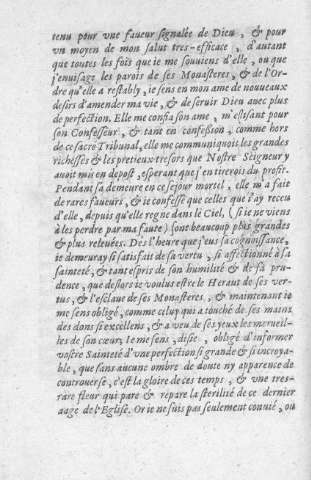 tenu pour vne faueur signalée de Dieu, & pour
vn moyen de mon salut tres-efficace, d'autant
que toutes les fois que ie me souuiens d'elle, ou que
j'enuisage les parois de ses Monasteres, & de l'Or-
dre qu'elle a restably, ie sens en mon ame de nouueaux
desirs d'amender ma vie, & de seruir Dieu auec plus
de perfection. Elle me confia son ame, m'elisant pour
son Confesseur, & tant en confession, comme hors
de ce sacré Tribunal, elle me communiquoit les grandes
richesses & les pretieux tresors que Nostre Seigneur y
auoit mis en depost, esperant que j'en tirerois du profit.
Pendant sa demeure en ce sejour mortel, elle m'a fait
de rares faueurs, & ie confesse que celles que i'ay receu
d'elle, depuis qu'elle regne dans le Ciel, (si ie ne viens
à les perdre par ma faute) sont beaucoup plus grandes
& plus releuées. Dés l'heure que j'eus sa cognoissance,
ie demeuray si satisfait de sa vertu, si affectionné à sa
sainteté, & tant espris de son humilité & de sa pru-
dence, que deslors ie voulus estre le Heraut de ses ver-
tus, & l'esclaue de ses Monasteres, & maintenant ie
me sens obligé, comme celuy qui a touché de ses mains
des dons si excellens, & a veu de ses yeux les merueil-
les de son cœur; ie me sens, disie, obligé d'informer
vostre Sainteté d'vne perfection si grande & si incroya-
ble, que sans aucune ombre de doute ny apparence de
controuerse, c'est la gloire de ces temps, & vne tres-
rare fleur qui pare & repare la sterilité de ce dernier
aage de l'Eglise. Or ie ne suis pas seulement conuié, ou